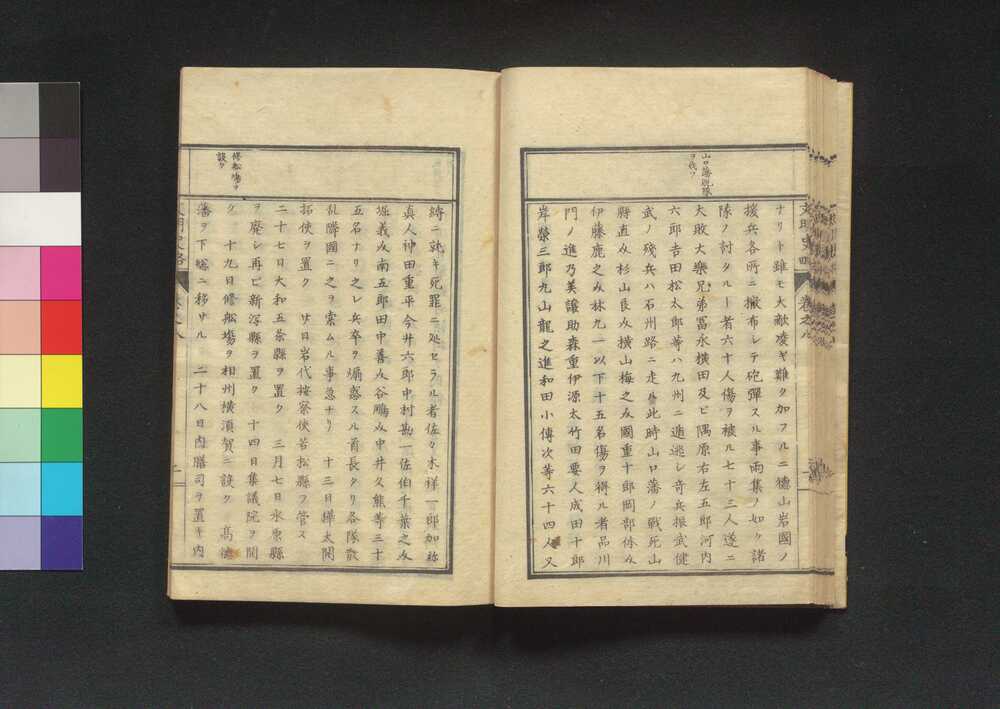 山口藩脱隊
ヲ伐ツ
ナリト雖モ大敵凌ギ難タ加フルニ德山岩國ノ
援兵各所ニ撒布シテ砲彈スル事雨集ノ如ク諸
隊ノ討タルヽ者六十人傷ヲ被ル七十三人遂ニ
大敗大樂兄弟冨永横田及ビ隅原右左五郎河内
六郎吉田松太郎等ハ九州ニ遁逃シ奇兵振武健
武ノ殘兵ハ石州路ニ走ル此時山口藩ノ戰死山
縣直 杉山良 横山梅之 國重十郎岡部
伊藤鹿之 林九一以下十五名傷ヲ得ル者品川
門ノ進乃美讓助森重伊源太竹田要人成田十郎
岸榮三郎九山龍之進和田小傳次等六十四人又
文明史略 卷之八
修船塲ヲ
設ク
縛ニ就キ死罪ニ処セラル者佐々木祥一郎加
真人神田重平今井六郎中村勘一佐伯千葉之
堀義 南五郎田中善 谷 中井久熊等三十
五名ナリ之レ兵卒ヲ煽惑スル酋長タリ各隊散
乱隣國ニ之ヲ索ムル事急ナリ 十三日樺太開
拓使ヲ置ク 廿日岩代按察使若松縣ヲ管ス
二十七日大和五条縣ヲ置ク 三月七日水原縣
ヲ廃シ再ビ新泻縣ヲ置ク 十四日集議院ヲ開
ク 十九日修舩塲ヲ相州横須賀ニ設ク 高德
藩ヲ下総ニ移サル 二十八日内膳司ヲ置キ内